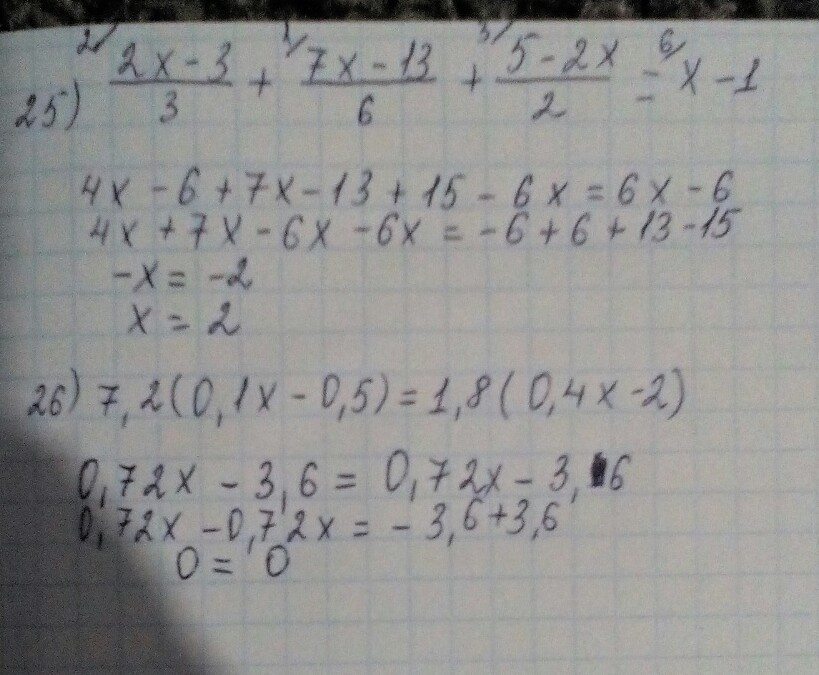 25) ²⁄ (2x - 3)/3 + ¹⁄ (7x - 13)/6 + ³⁄ (5 - 2x)/2 = ⁶⁄ x - 1
4x - 6 + 7x - 13 + 15 - 6x = 6x - 6
4x + 7x - 6x - 6x = -6 + 6 + 13 - 15
-x = -2
x = 2
26) 7,2(0,1x - 0,5) = 1,8(0,4x - 2)
0,72x - 3,6 = 0,72x - 3,6
0,72x - 0,72x = - 3,6 + 3,6
0 = 0